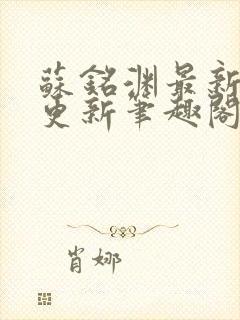 蘇銘淵最新
更新筆趣閣
肖娜